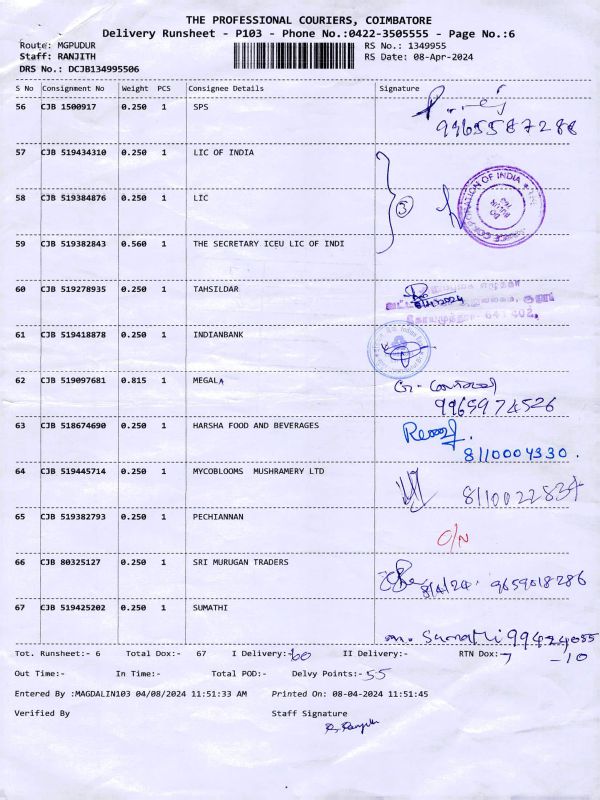 THE PROFESSIONAL COURIERS, COIMBATORE
Delivery Runsheet - P103 - Phone No.:0422-3505555 - Page No.:6
Route: MGPUDUR RS No.: 1349955
Staff: RANJITH RS Date: 08-Apr-2024
DRS No.: DCJB134995506
S No Consignment No Weight PCS Consignee Details Signature
56 CJB 1500917 0.250 1 SPS
9965587288
57 CJB 519434310 0.250 1 LIC OF INDIA
58 CJB 519384876 0.250 1 LIC 3
59 CJB 519382843 0.560 1 THE SECRETARY ICEU LIC OF INDI
60 CJB 519278935 0.250 1 TAHSILDAR
61 CJB 519418878 0.250 1 INDIANBANK
62 CJB 519097681 0.815 1 MEGALA
9965974526
63 CJB 518674690 0.250 1 HARSHA FOOD AND BEVERAGES
8110004330.
64 CJB 519445714 0.250 1 MYCOBLOOMS MUSHRAMERY LTD
8110022834
65 CJB 519382793 0.250 1 PECHIANNAN
O/N
66 CJB 80325127 0.250 1 SRI MURUGAN TRADERS
8/4/24. 9659018286
67 CJB 519425202 0.250 1 SUMATHI
m. Sumathi 994424055
Tot. Runsheet:- 6 Total Dox:- 67 I Delivery:- 60 II Delivery:- RTN Dox:- 7
-10
Out Time:- In Time:- Total POD:- Delvy Points:- 55
Entered By :MAGDALIN103 04/08/2024 11:51:33 AM Printed On: 08-04-2024 11:51:45
Verified By Staff Signature